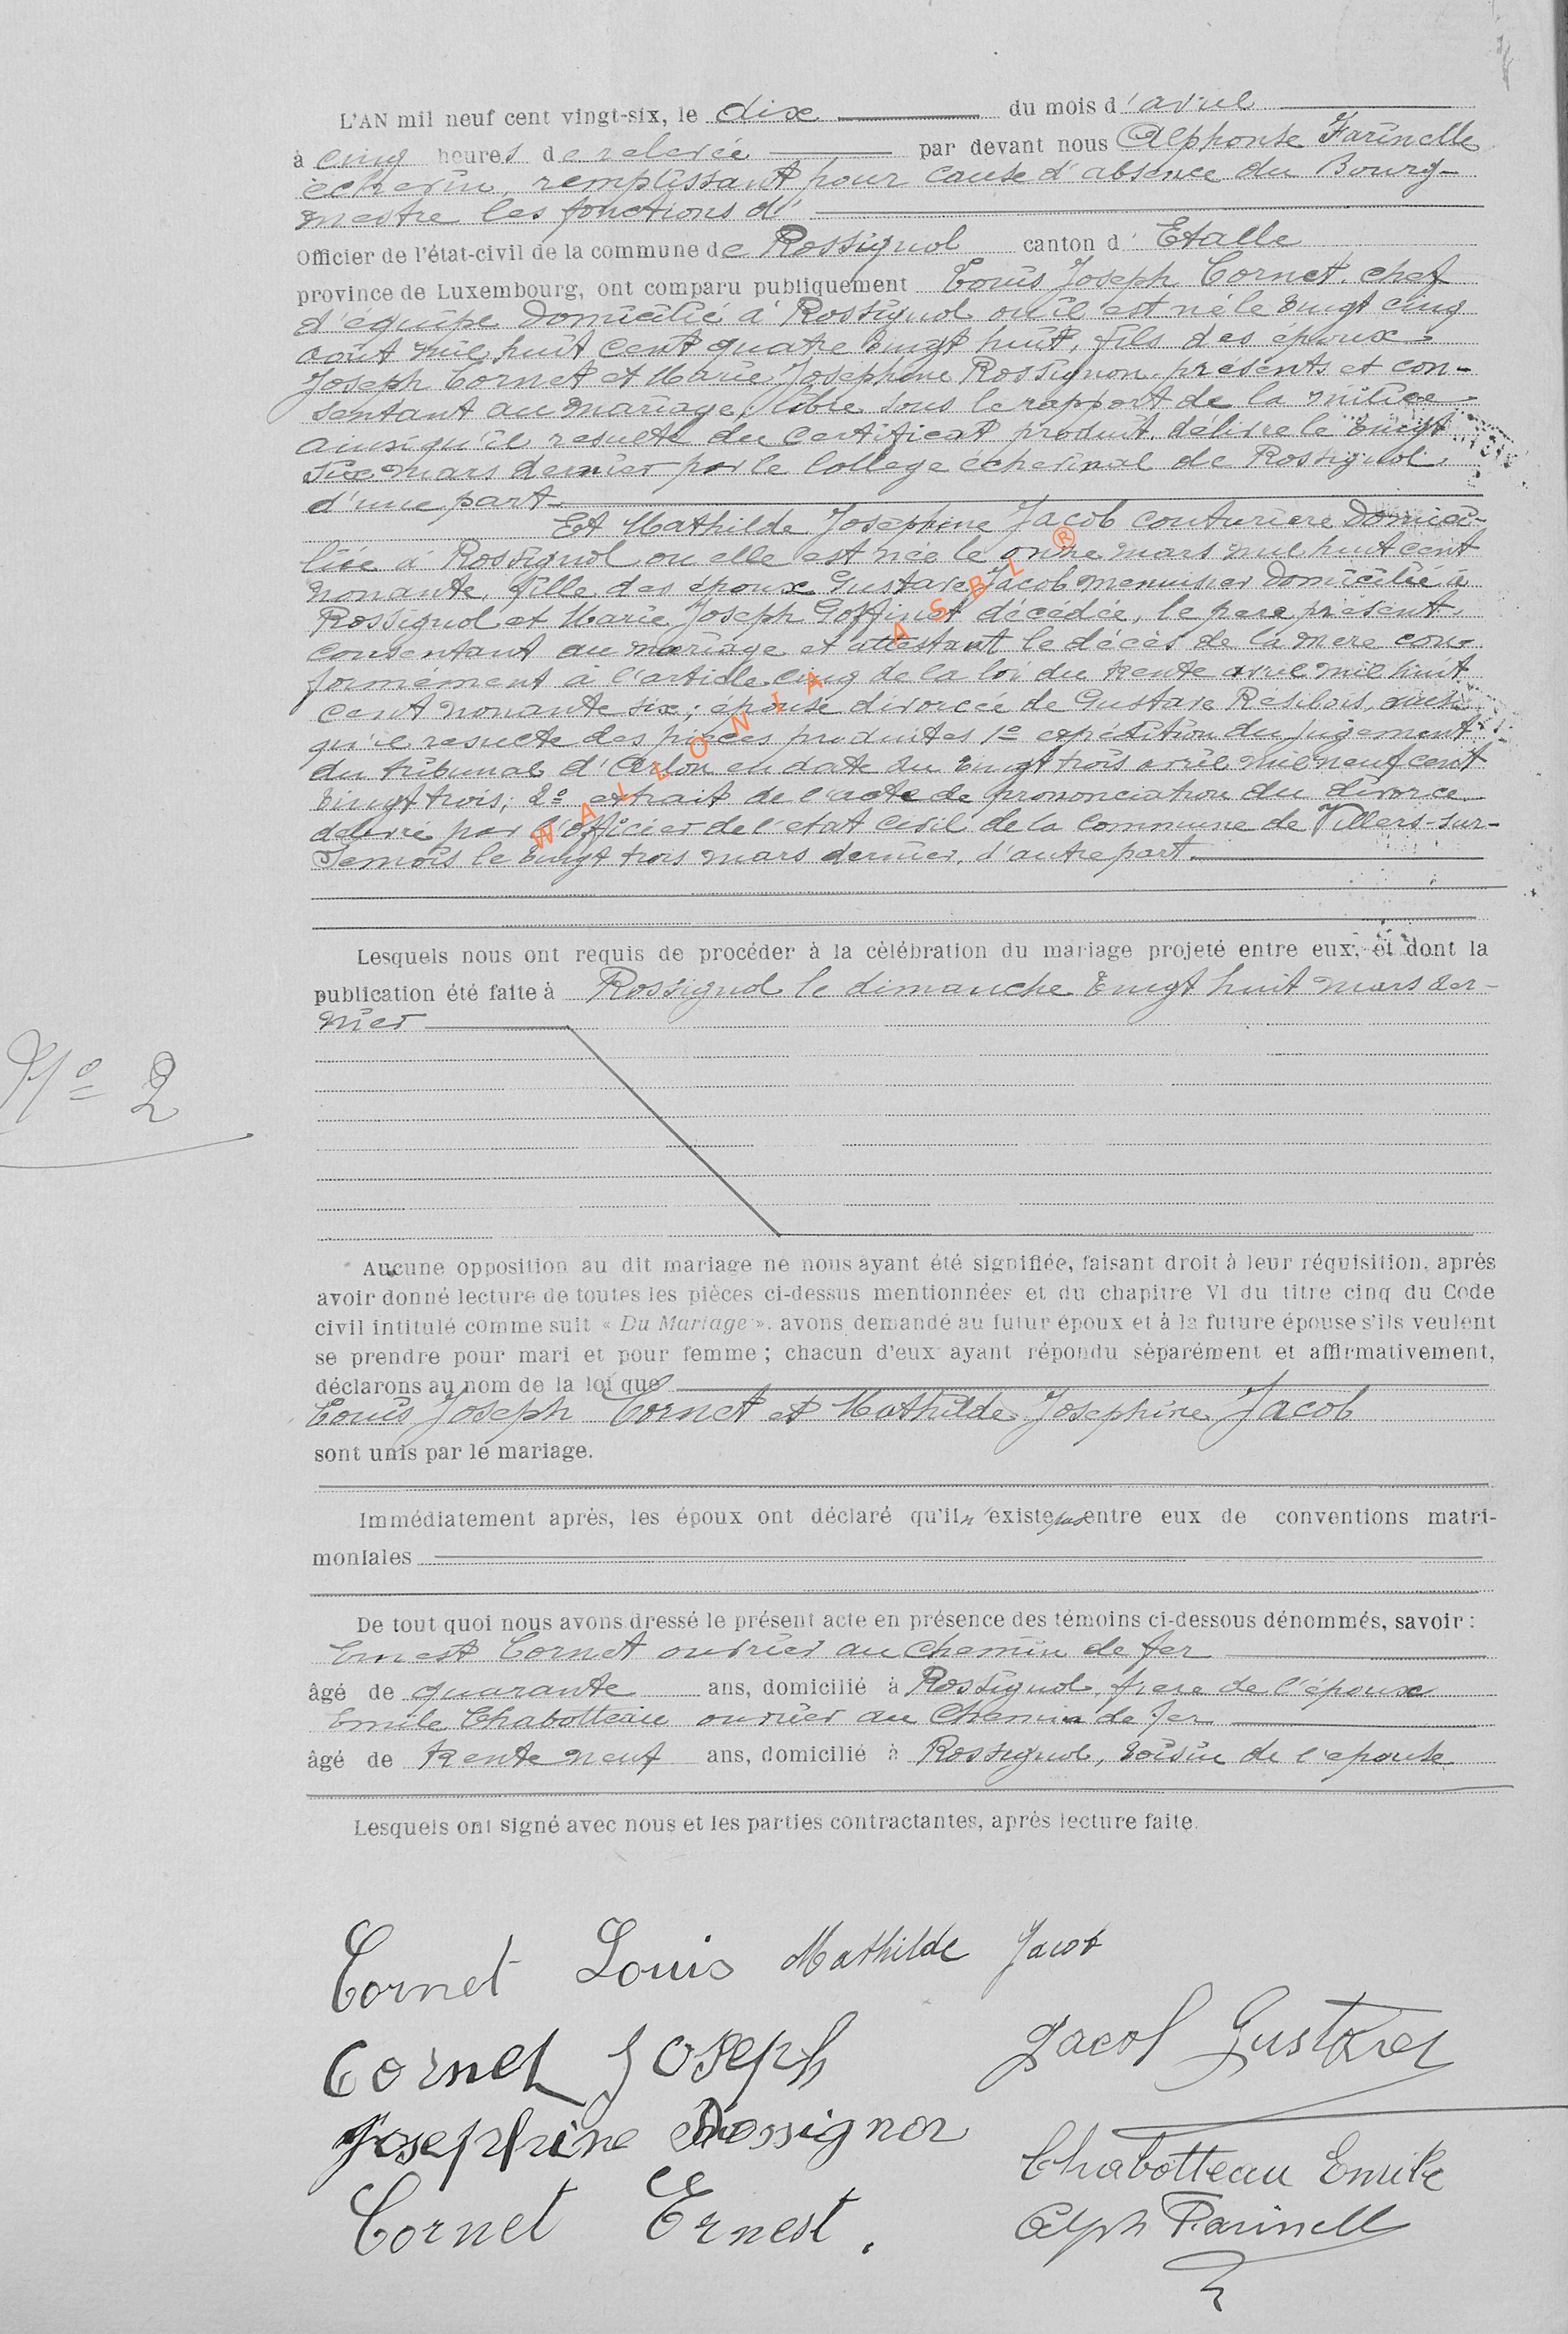 L'AN mil neuf cent vingt-six, le dix du mois d'avril
à cinq heures de relevée par devant nous Alphonse Farinelle
échevin, remplissant pour cause d'absence du Bourg-
mestre les fonctions d'
Officier de l'état-civil de la commune de Rossignol canton d' Etalle
province de Luxembourg, ont comparu publiquement Louis Joseph Cornet, chef
d'équipe domicilié à Rossignol où il est né le vingt cinq
août mil huit cent quatre vingt huit, fils des époux
Joseph Cornet et Marie Josephine Rossignon présents et con-
sentant au mariage, libre sous le rapport de la milice
ainsi qu'il resulte du certificat produit, délivré le vingt
six mars dernier par le College échevinal de Rossignol
d'une part
Et Mathilde Joséphine Jacob couturière domici-
liée à Rossignol ou elle est née le onze mars mil huit cent
nonante, fille des époux Gustave Jacob menuisier domicilié à
Rossignol et Marie Joseph Goffinet décédée, le pere présent
consentant au mariage et attestant le décès de la mere con-
formément à l'article cinq de la loi du trente avril mil huit
cent nonante six; épouse divorcée de Gustave Résibois, ainsi
qu'il resulte des pièces produites 1º expédition du jugement
du tribunal d'Arlon en date du vingt trois avril mil neuf cent
vingt trois; 2º extrait de l'acte de prononciation du divorce
délivré par l'officier de l'etat civil de la commune de Villers-sur-
Semois le vingt trois mars dernier, d'autre part.
WALLONIA ASBL ®
Lesquels nous ont requis de procéder à la célébration du mariage projeté entre eux, et dont la
publication été faite à Rossignol le dimanche vingt huit mars der-
nier
Nº 2
Aucune opposition au dit mariage ne nous ayant été signifiée, faisant droit à leur réquisition, après
avoir donné lecture de toutes les pièces ci-dessus mentionnées et du chapitre VI du titre cinq du Code
civil intitulé comme suit « Du Mariage », avons demandé au futur époux et à la future épouse s'ils veulent
se prendre pour mari et pour femme ; chacun d'eux ayant répondu séparément et affirmativement,
déclarons au nom de la loi que
Louis Joseph Cornet et Mathilde Josephine Jacob
sont unis par le mariage.
Immédiatement après, les époux ont déclaré qu'il n'existe pas entre eux de conventions matri-
moniales
De tout quoi nous avons dressé le présent acte en présence des témoins ci-dessous dénommés, savoir :
Ernest Cornet ouvrier au chemin de fer
âgé de quarante ans, domicilié à Rossignol, frere de l'époux
Emile Chabotteau ouvrier au chemin de fer
âgé de trente neuf ans, domicilié à Rossignol, voisin de l'epouse
Lesquels ont signé avec nous et les parties contractantes, après lecture faite.
Cornet Louis Mathilde Jacob
Cornet Joseph Jacob Gustave
Josephine Rossignon
Chabotteau Emile
Cornet Ernest.
Alph Farinelle